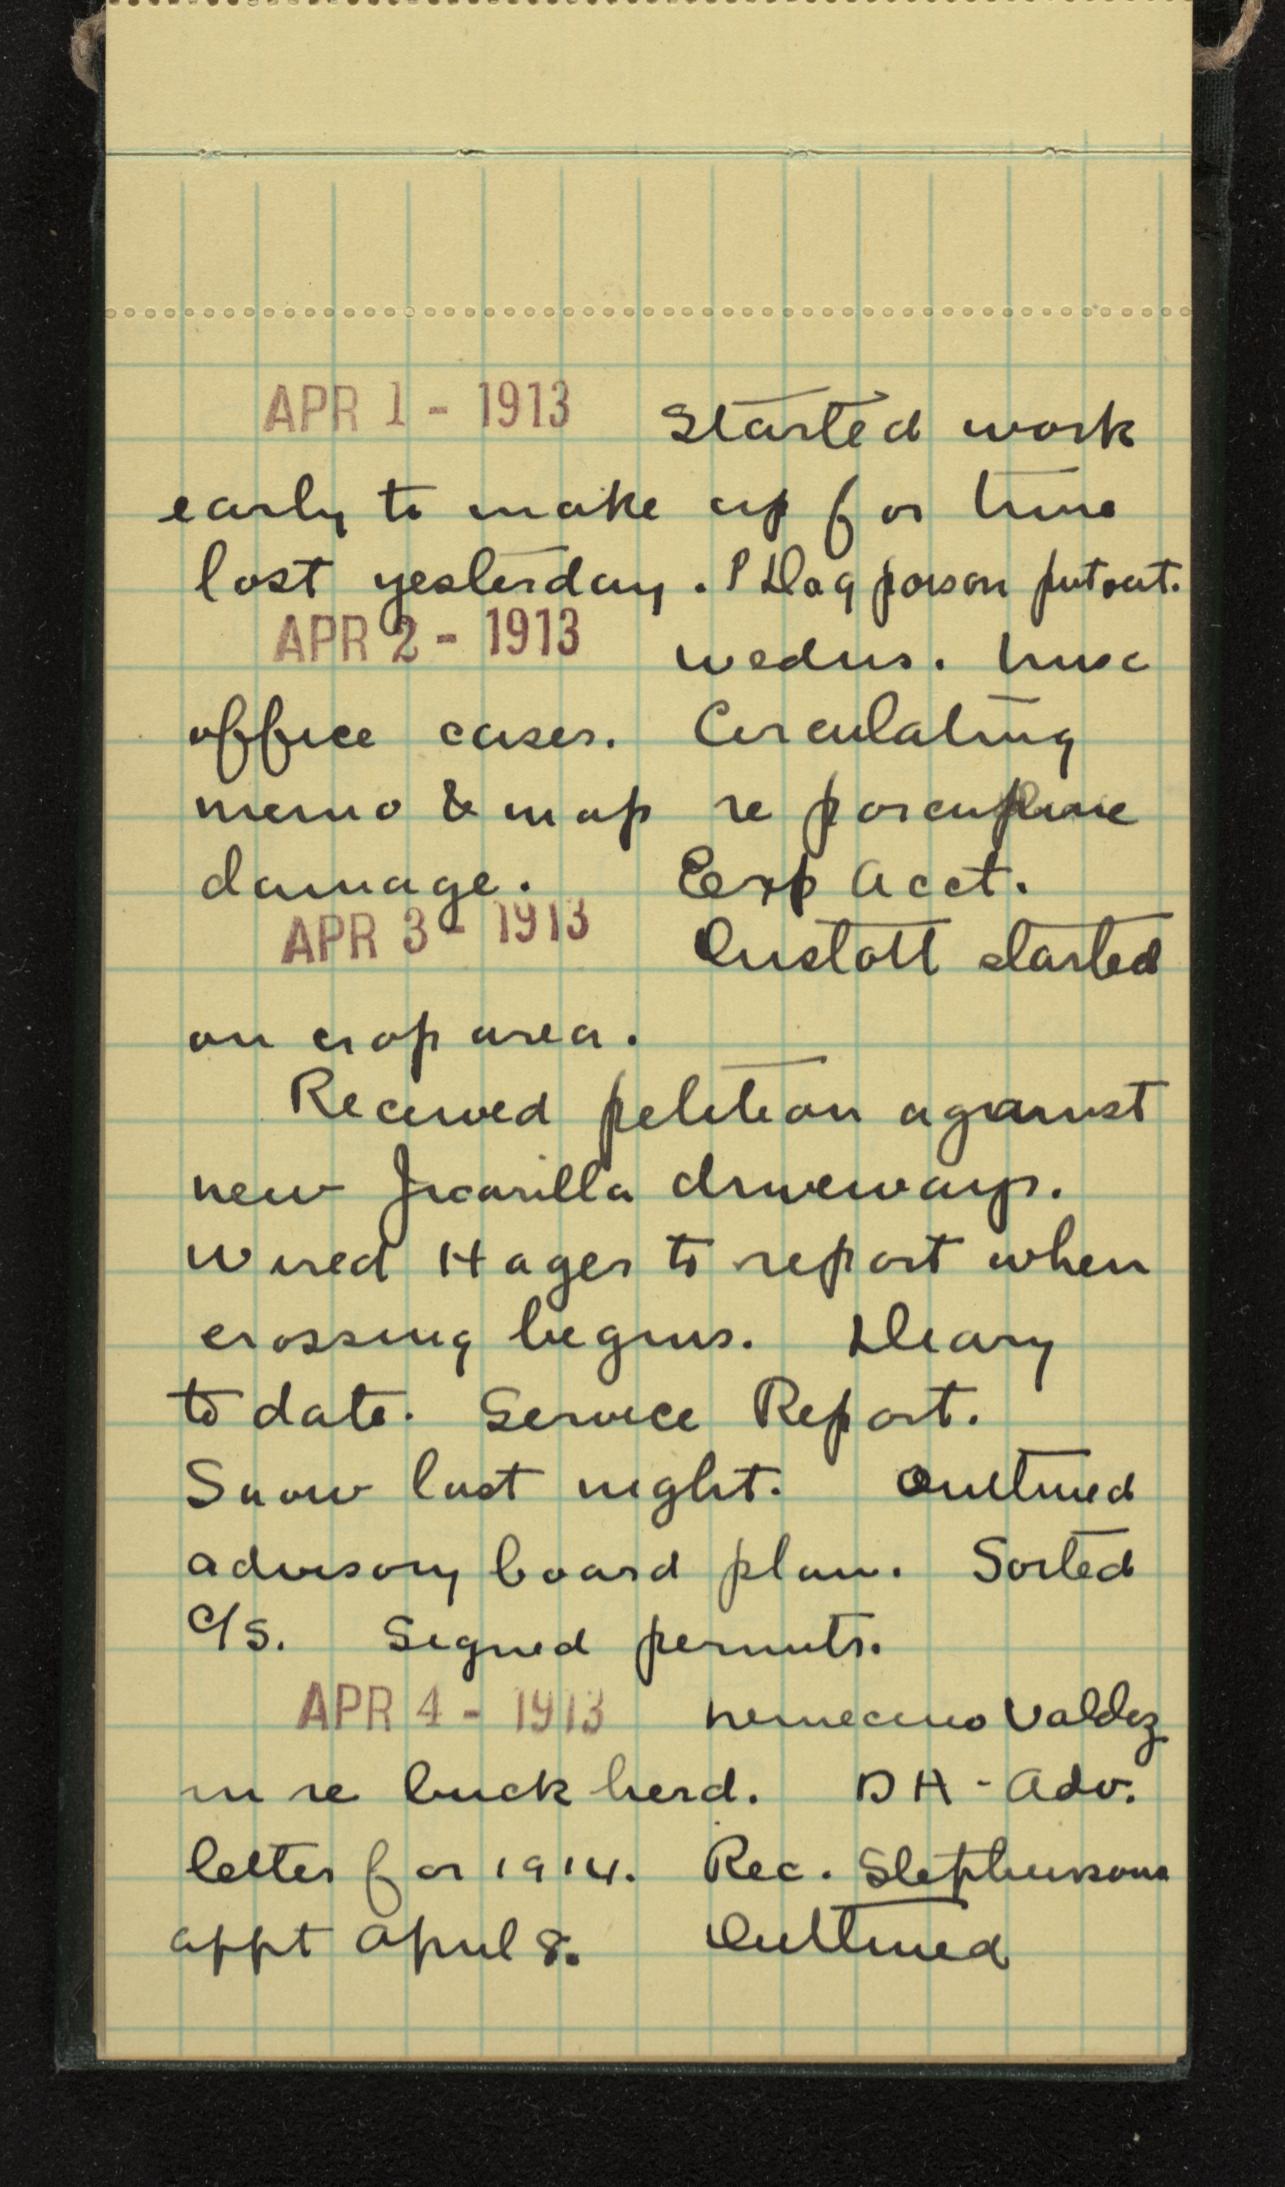 APR 1 - 1913 Started work
early to make up for time
lost yesterday. P Dog poison put out.
APR 2 - 1913 Wedns. Misc
office cases. Circulating
memo & map re porcupine
damage. Exp Acct.
APR 3 - 1913 started
on crop area.
Received petition against
new Jicarilla driveways.
Wired Hager to report when
crossing begins. Diary
to date. Service Report.
Snow last night. Outlined
advisory board plan. Sorted
C/S. Signed permits.
APR 4 - 1913 Nemecino Valdez
in re buck herd. DH - Adv.
letter for 1914. Rec. Stephensons
appt April 8. Outlined